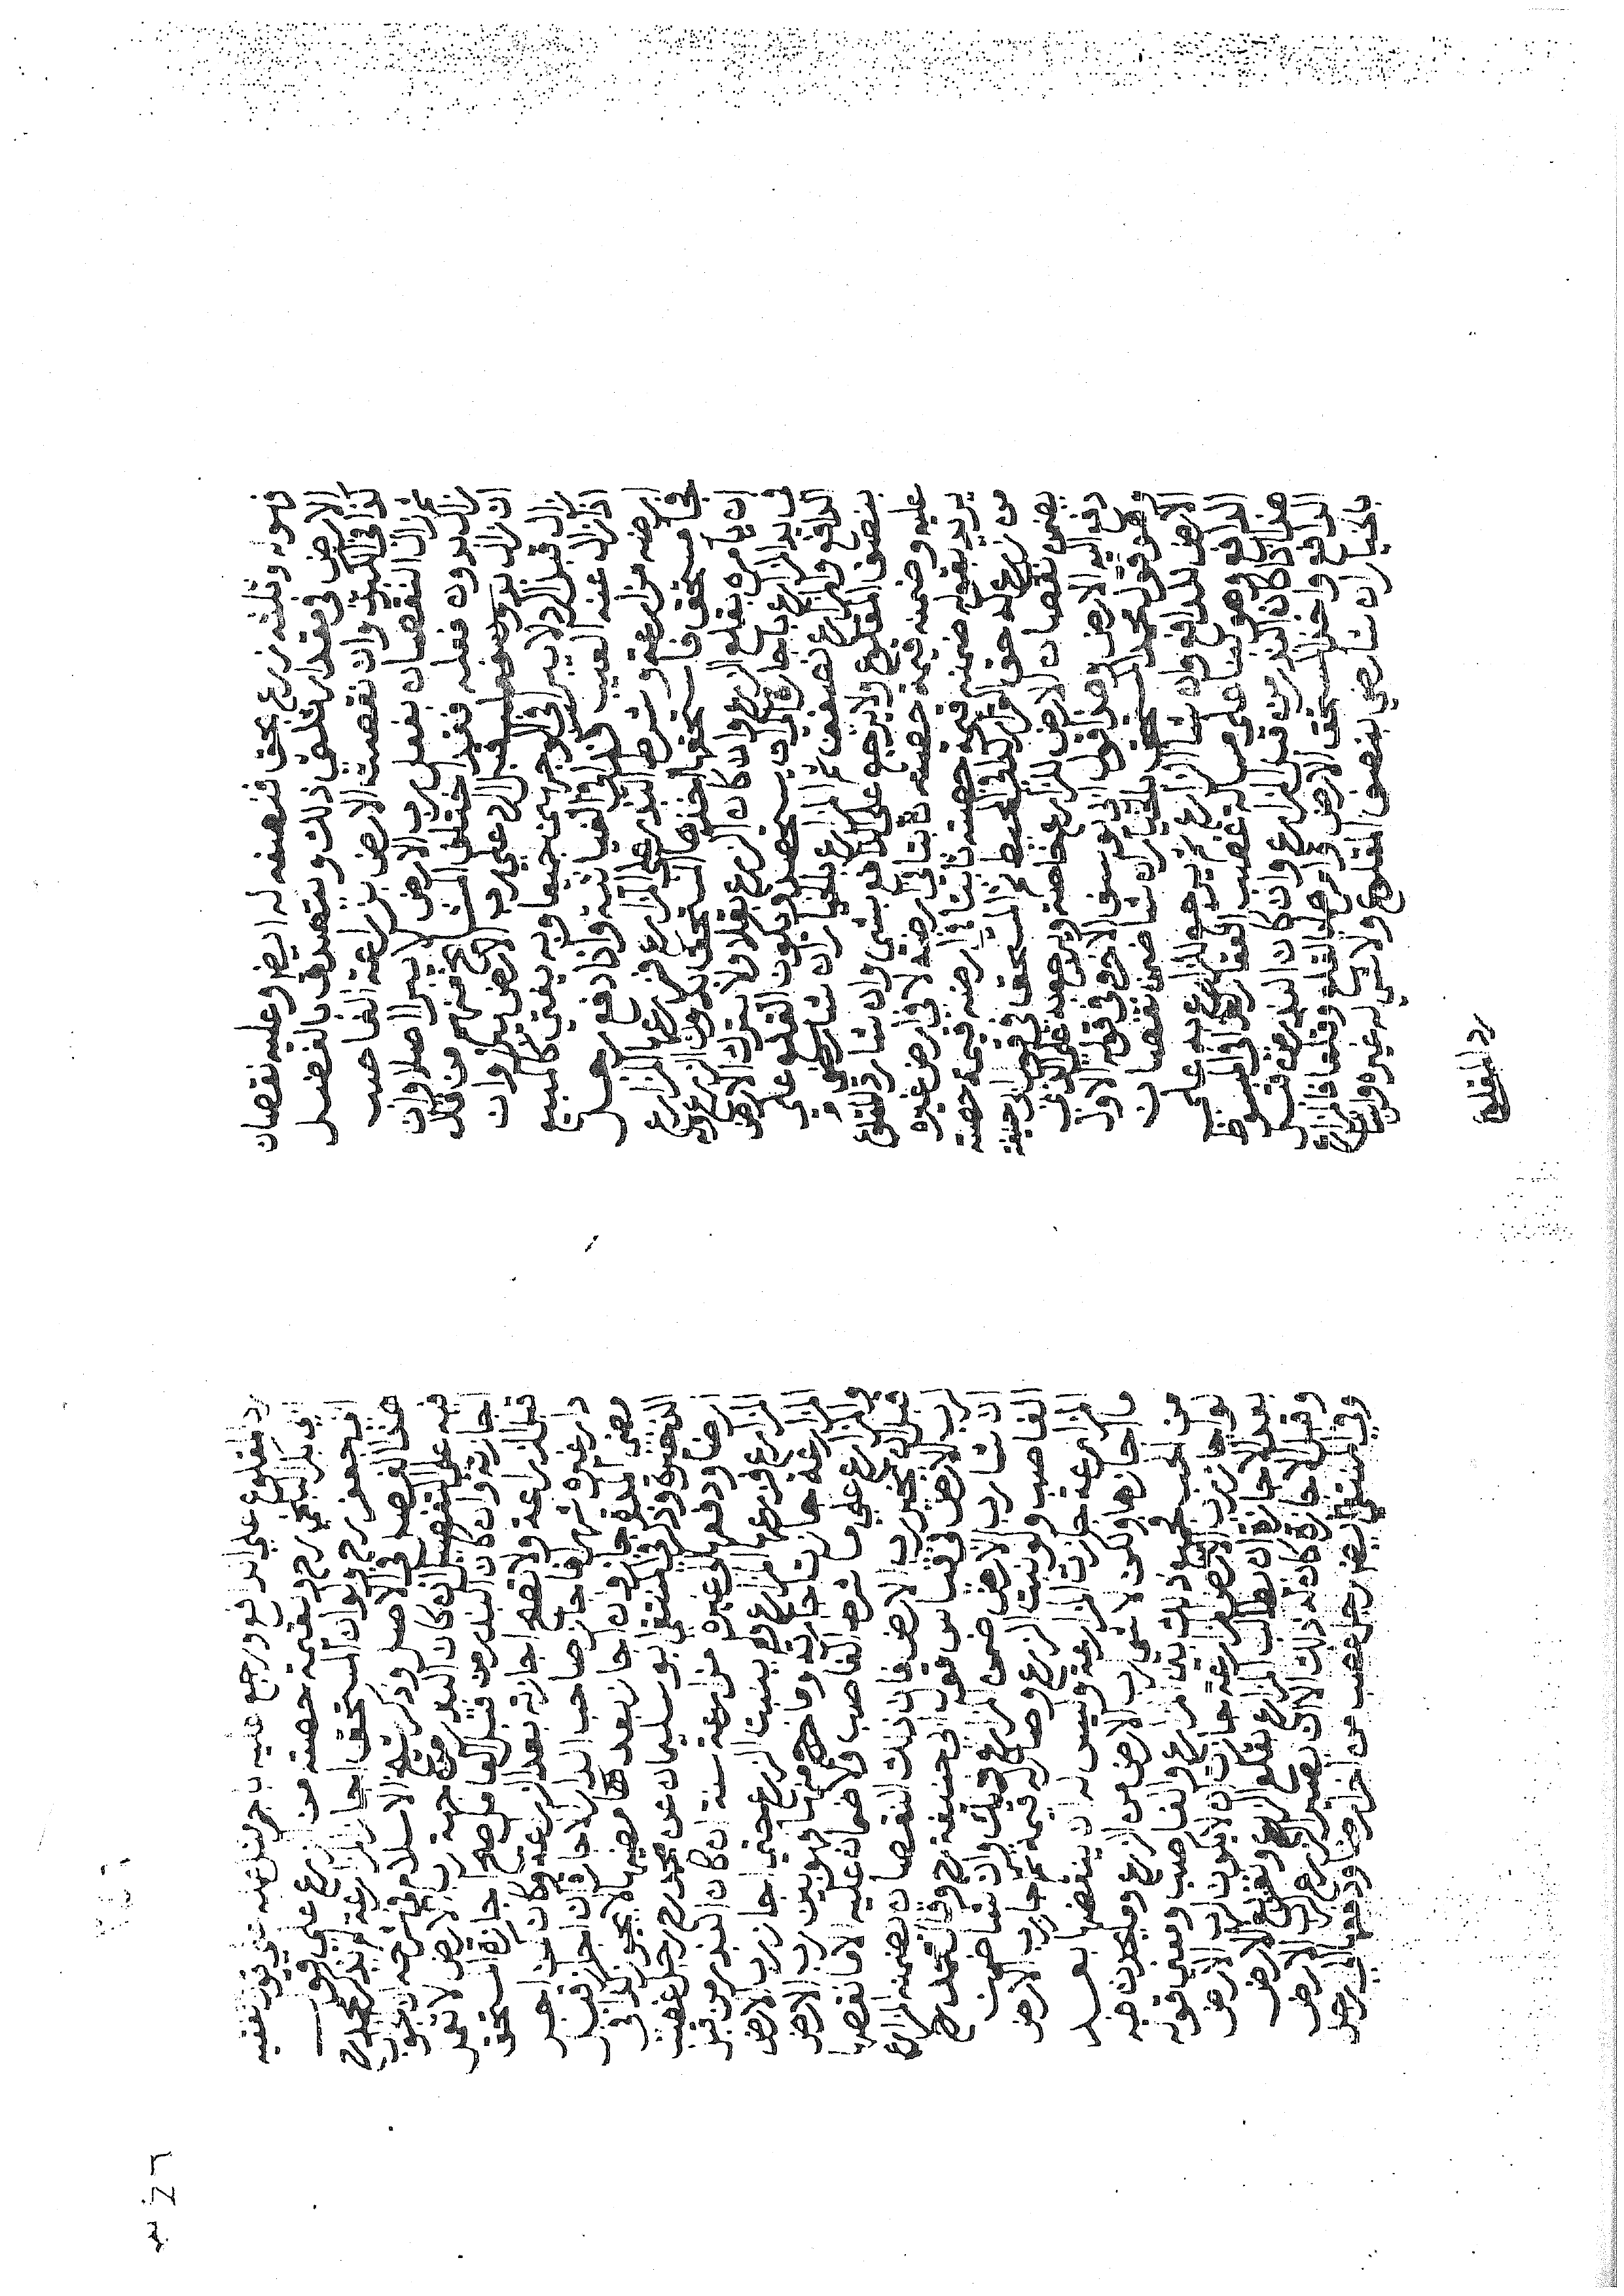 فهوله وثلثه زرع بحق فنصفه له ايض وعليه نقصان
الارض في مقدار ثلثي ذلك ويتصدق بالفضل
كذا في الكبرى وان نقصت الارض بزراعة الغاصب
ثم زال النقصان بفعل رب الارض لا يبرا اصلا وان
زال بدون فعله فقد اختلف المشايخ منهم من قال
ان زال بدون فعله قبل الرد على رب الارض يبرا وان
زال قبل الرد لا يبرا في الوجهين جميعا وبه يفتي كالمبيع
اذا زال عنه العيب كذا في الغياثية واذا دفع رجل
ارضه مزارعة وشرط البذر على المزارع فزرعها المزارع
فاستحقها اخذها المستحق بدون الزرع وله
ان يامره بقلع الزرع وان كان الزرع بقلا ولا يترك الارض
في يد المزارع باجارة الى ان يستحصد ويكون القلع على
الدافع والمزارع نصفين ثم المزارع بالخيار ان شا رضي
بنصف المقلوع ولا يرجع على الدافع بشي وان شا رد المقلوع
عليه وضمنه قيمة حصته ثابتا في ارضه لا في ارض غيره
يريد بقوله ضمنه قيمة حصته ثابتا في ارضه قيمة حصته
من زرع له حق القرار كذا في المحيط ثم المستحق في قول ابي حنيفة
يضمن نقصان الارض للزارع خاصة ويرجع به على الذي
دفع اليه الارض وهذا قول ابي يوسف الاخر وفي قوله الاول
وهو قول محمد المستحق بالخيار ان شا ضمن نقصان
الارض الدافع وان شا الزارع ثم يرجع المزارع به على
الدافع وهو بنا على مسالة غصب العقار كذا في المبسوط
هذا اذا كان البذر من قبل المزارع وان كان البذر من قبل
الدافع واخذ المستحق الارض وامرهما بالقلع وقلعا فالمزارع
بالخيار ان شا رضي بنصف المقلوع ولا شي له غيره وان شا
رد المقلوع
رد المقلوع على الدافع ورجع عليه باجر مثل عمله في قول الفقيه
ابي بكر البلخي رح وبقيمة حصته من الزرع على قول
ابي جعفر رح ولو ان المستحق اجاز المزارعة لم يذكر محمد رح
هذا الفصل في الاصل وذكر شيخ الاسلام في شرحه ان الجواب
فيه على التفصيل ان كان البذر من جهة رب الارض لا تعمل
اجازته وان كان البذر من قبل العامل صح اجازة المستحق
قبل المزارعة ولا تصح اجازته بعد الزراعة وكان كمن اجر
دار غيره شهرا فاجاز صاحب الدار الاجارة ان اجاز قبل
مضي المدة جاز وان اجاز بعدها مضيها لا يجوز كذا في
الذخيرة وذكر في المنتقى ابو سليمان عن محمد رح رجل غصب
ارضا ودفعها الى غيره مزارعة سنة ان كان البذر من قبل
المزارع فزرعها المزارع ولم ينبت الزرع حتى اجاز رب الارض
المزارعة جازت اجازته وما خرج منها فهو بين رب الارض
والمزارع على ما شرط الغاصب ولا ضمان عليه الا ما نقصها
قبل ان يجيز رب الارض فان ذلك النقصان يضمنه المزارع
لرب الارض في قياس قول ابي حنيفة رح وقال محمد رح
ان شا رب الارض ضمن المزارع ذلك وان شا ضمن
الغاصب ولو نبت الزرع وصار له قيمة ثم اجاز رب الارض
المزارعة جازت المزارعة وليس له ان ينقضها بعد
ما اجازها ولكن لا شي لرب الارض من الزرع وما يحدث فيه
من الحب فجميع ذلك بين المزارع والغاصب ومعنى قوله
لو اجاز رب الارض المزارعة جازت ان لا يكون لرب الارض
بعد الاجازة ان يطالب المزارع بقلع الزرع وتفريغ الارض
وقبل الاجازة كان له ذلك الا ان يصير الزرع لرب الارض
وفي المنتقى ايض رجل غصب من اخر ارضا ودفعها الى رجل